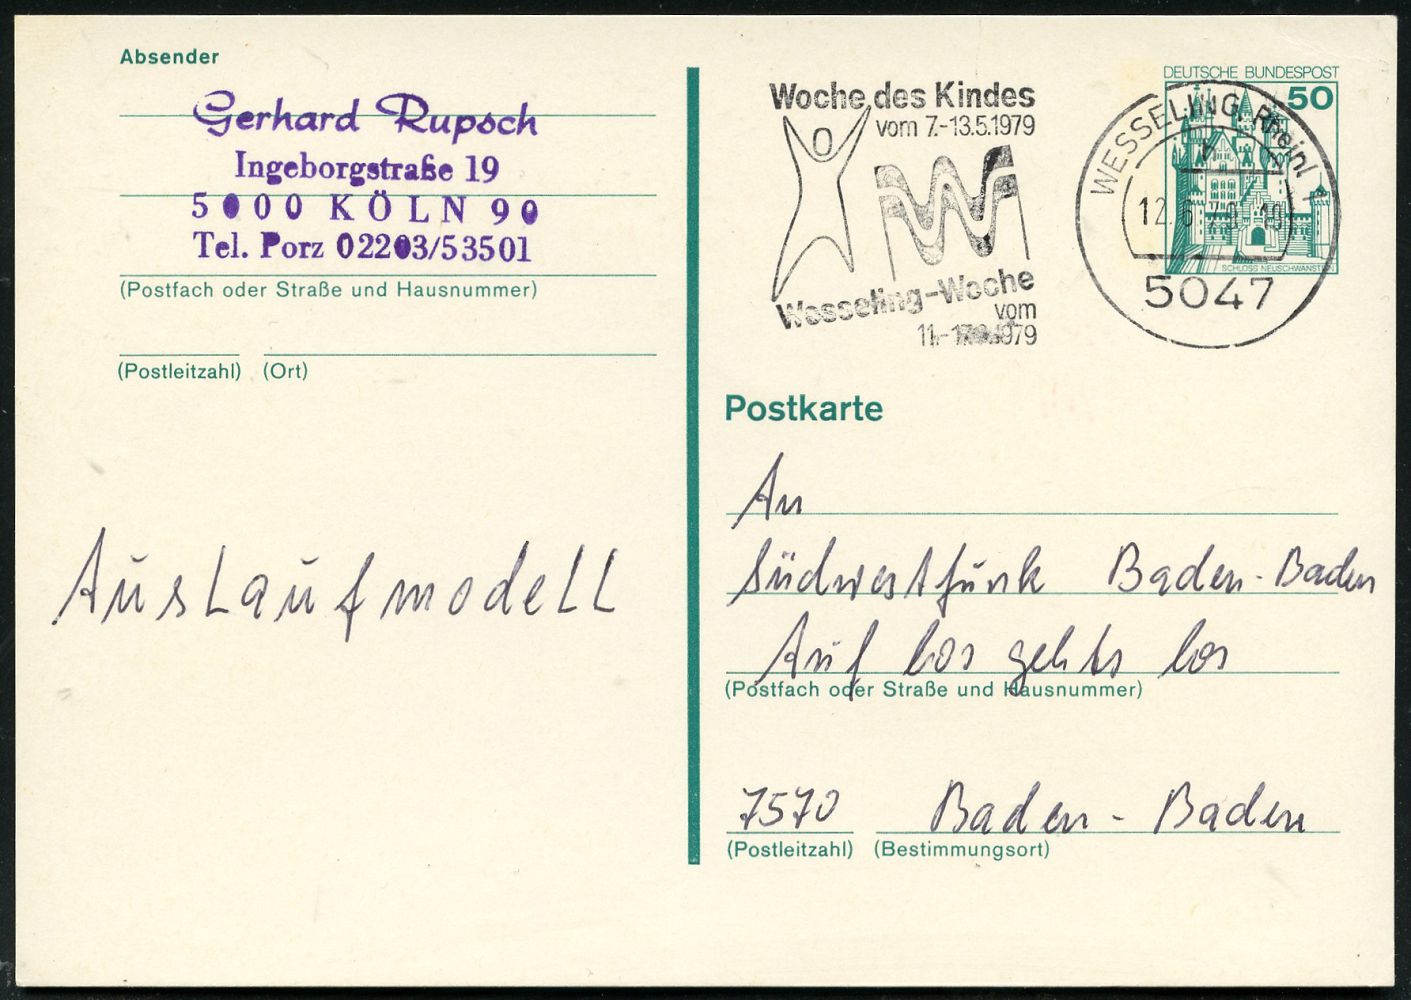 Absender
Gerhard Rupsch
Ingeborgstraße 19
5000 KÖLN 90
Tel. Porz 02203/53501
(Postfach oder Straße und Hausnummer)
(Postleitzahl) (Ort)
Auslaufmodell
Woche des Kindes
vom 7.-13.5.1979
Wesseling-Woche
vom
DEUTSCHE BUNDESPOST
50
SCHLOSS NEUSCHWANSTEIN
WESSELING, Rheinl 1
5047
Postkarte
An
Südwestfunk Baden-Baden
Auf los gehts los
(Postfach oder Straße und Hausnummer)
7570 Baden-Baden
(Postleitzahl) (Bestimmungsort)